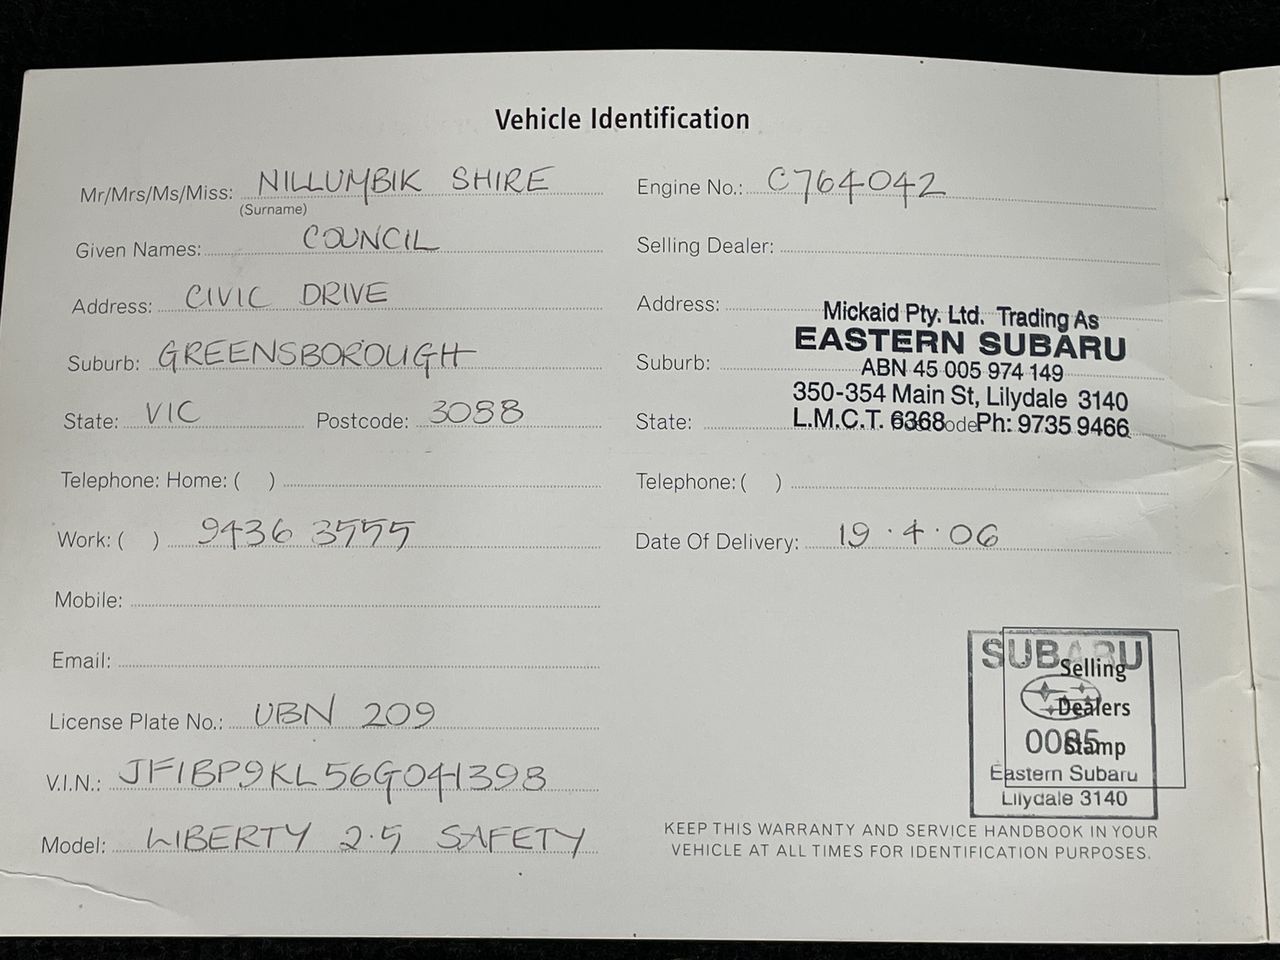 Vehicle Identification
Mr/Mrs/Ms/Miss: NILLUMBIK SHIRE
(Surname)
Given Names: COUNCIL
Address: CIVIC DRIVE
Suburb: GREENSBOROUGH
State: VIC Postcode: 3088
Telephone: Home: ( )
Work: ( ) 9436 3555
Mobile:
Email:
License Plate No.: UBN 209
V.I.N.: JF1BP9KL56G041398
Model: LIBERTY 2.5 SAFETY
Engine No.: C764042
Selling Dealer:
Address:
Mickaid Pty. Ltd. Trading As
EASTERN SUBARU
Suburb:
ABN 45 005 974 149
350-354 Main St, Lilydale 3140
State: L.M.C.T. 6368 Ph: 9735 9466
Telephone: ( )
Date Of Delivery: 19.4.06
SUBARU
Selling
Dealers
Stamp
0085
Eastern Subaru
Lilydale 3140
KEEP THIS WARRANTY AND SERVICE HANDBOOK IN YOUR
VEHICLE AT ALL TIMES FOR IDENTIFICATION PURPOSES.